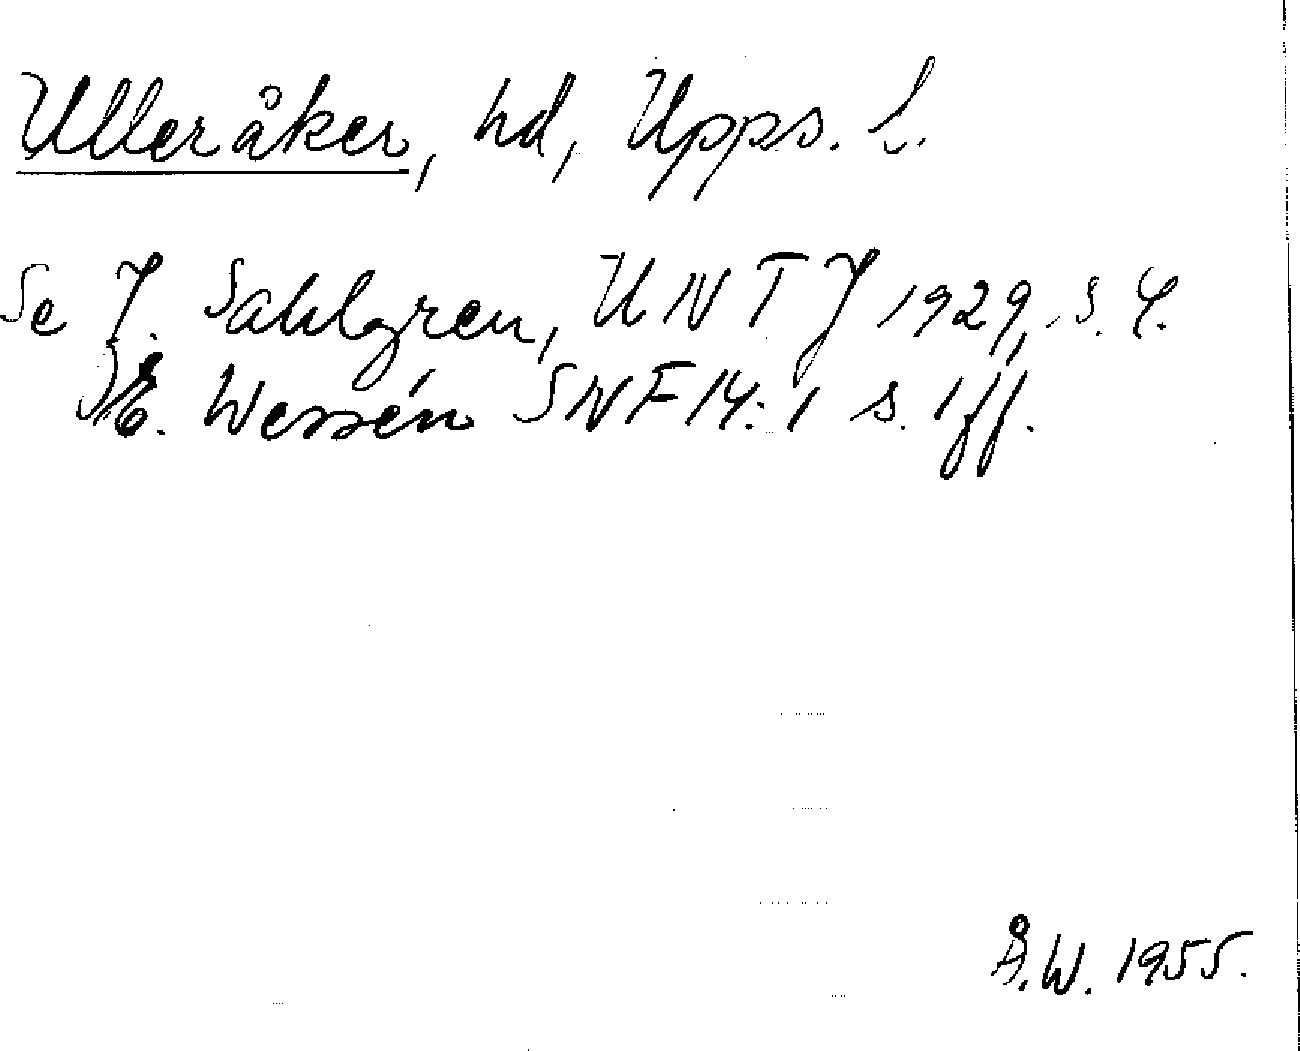 Ulleråker, hd, Upps. l.
Se J. Sahlgren, UNTJ 1929, s. 4.
E. Wessén SNF 14:1 s. 1ff.
Å.W. 1955.